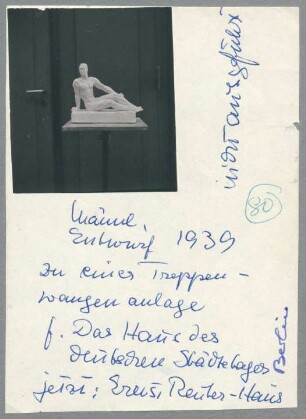 nicht ausgeführt
80
Männl.
Entwurf 1939
zu einer Treppen-
wangenanlage
f. Das Haus des
deutschen Städtetages
jetzt: Ernst Reuter-Haus
Berlin